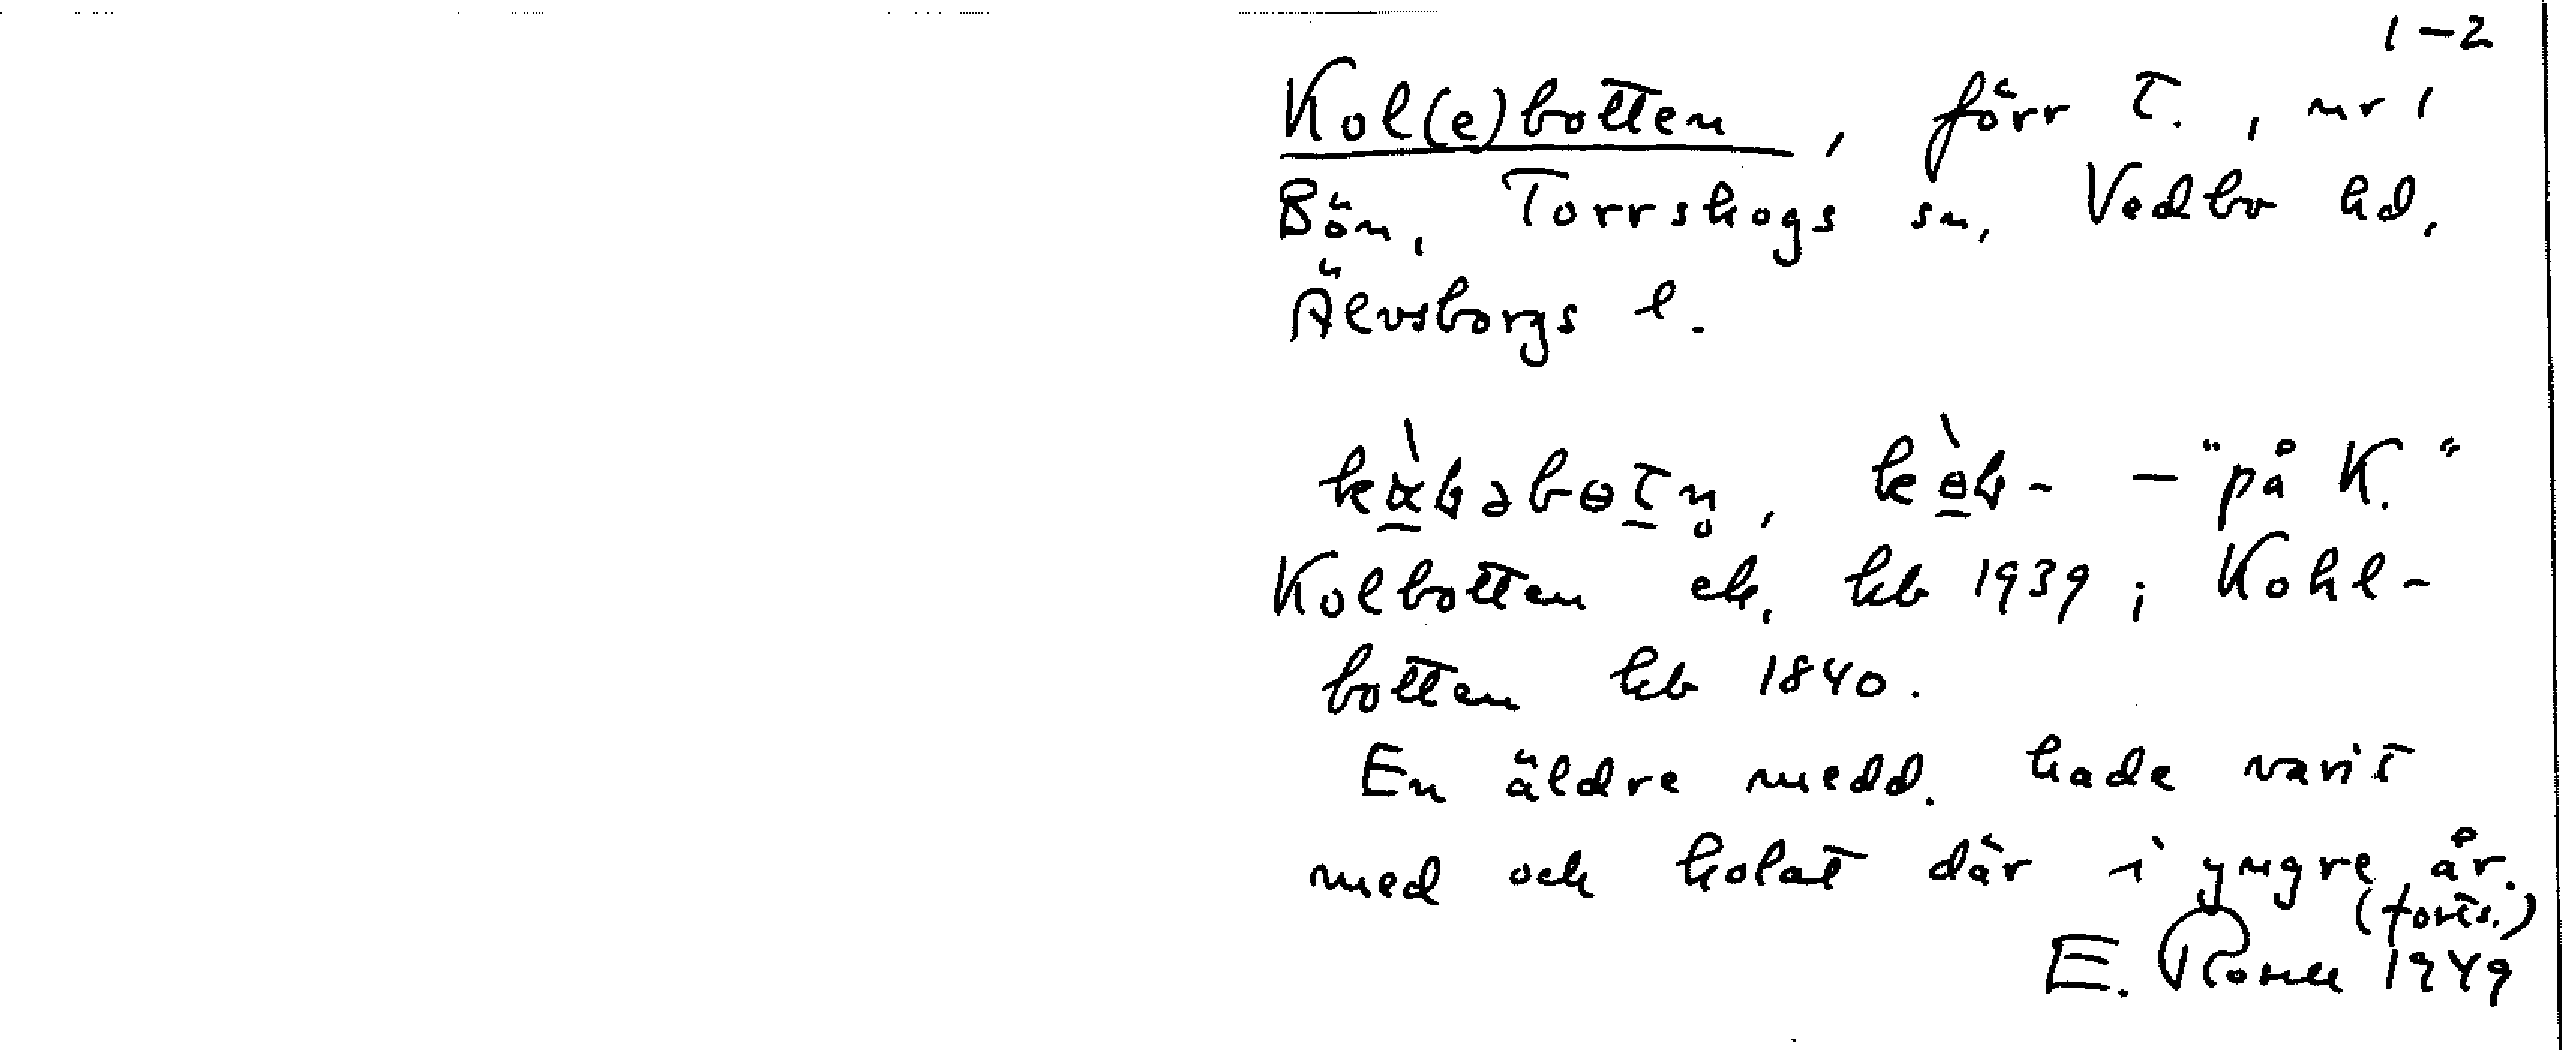 1-2
Kol(e)botten, förr t., nr 1
Bön, Torrskogs sn, Vedbo hd,
Älvsborgs l.
— "på K."
Kolbotten ek, kb 1939; Kohl-
botten kb 1840.
En äldre medd. hade varit
med och kolat där i yngre år.
(forts.)
E. 1949